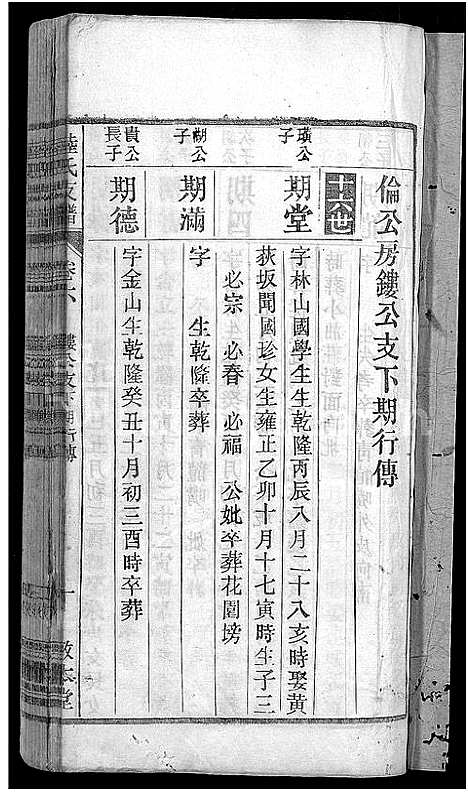 倫公房鏤公支下期行傳
十六世
璜公子
期堂
字林山國學生生乾隆丙辰八月二十八亥時娶黃
荻坂聞國珍女生雍正乙卯十月十七寅時生子三
必宗 必春 必福 公妣卒葬花園塝
湖公子
期滿
字 生乾隆卒葬
貴公長子
期德
字金山生乾隆癸丑十月初三酉時卒葬
陸氏支譜
卷六
鏤公支下期行傳
一
敦本堂